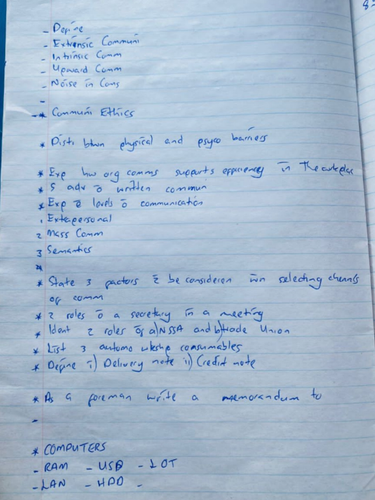 - Define
- Extrensic Communi
- Intrinsic Comm
- Upward Comm
- Noise in Coms
-
* Communi Ethics
* Disti btwn physical and psyco barriers
* Exp how org comms supports efficiency in the workplace
* 5 adv o written commun
* Exp o levels o communication
1 Extrapersonal
2 Mass Comm
3 Semantics
4
* State 3 factors 2 be consideron wen selecting channels
of comm
* 2 roles to a secretary in a meeting
* Ident 2 roles of a) NSSA and b) trade Union
* List 3 automo wkshp consumables
* Define i) Delivery note ii) Credit note
* As a foreman write a memorandum to
-
* COMPUTERS
- RAM - USB - IOT
- LAN - HDD -